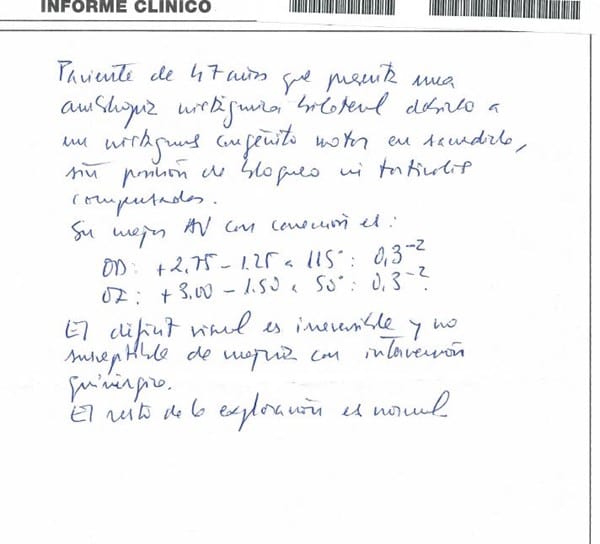 INFORME CLÍNICO
Paciente de 47 años que presenta una
ambliopía nistágmica bilateral debido a
un nistagmus congénito motor en sacudida,
sin posición de bloqueo ni tortícolis
compensadora.
Su mejor AV con corrección es:
OD: +2,75 - 1.25 a 115°: 0,3⁻²
OI: +3.00 - 1.50 a 50°: 0,3⁻².
El déficit visual es irreversible y no
susceptible de mejoría con intervención
quirúrgica.
El resto de la exploración es normal